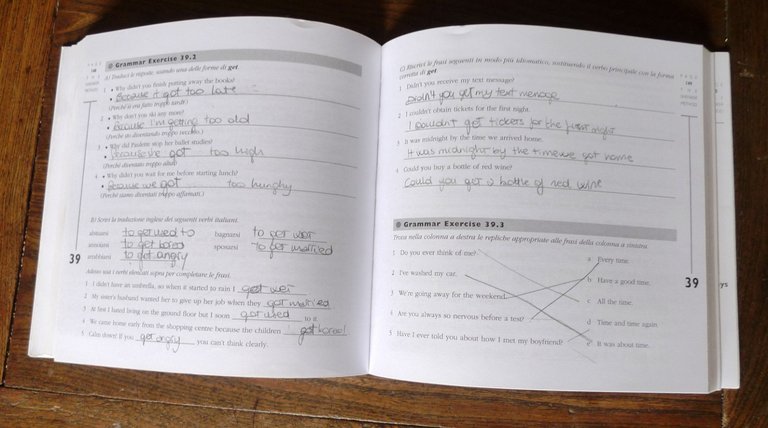 PAGE
148
THE
ANSWER
METHOD
Grammar Exercise 39.2
A) Traduci le risposte, usando una delle forme di get.
1 • Why didn't you finish putting away the books?
• Because it got too late
(Perché si era fatto troppo tardi!)
2 • Why don't you ski any more?
• Because I'm getting too old
(Perché sto diventando troppo vecchio.)
3 • Why did Paulette stop her ballet studies?
• Because she got too high
(Perché diventata troppo alta!)
4 • Why didn't you wait for me before starting lunch?
• Because we got too hunghy
(Perché siamo diventati troppo affamati.)
B) Scrivi la traduzione inglese dei seguenti verbi italiani.
abituarsi to get used to bagnarsi to get wer
annoiarsi to get bored sposarsi to get married
arrabbiarsi to get angry
39
Adesso usa i verbi elencati sopra per completare le frasi.
1 I didn't have an umbrella, so when it started to rain I got wer
2 My sister's husband wanted her to give up her job when they got married
3 At first I hated living on the ground floor but I soon got used to it.
4 We came home early from the shopping centre because the children got bored
5 Calm down! If you get angry you can't think clearly.
C) Riscrivi le frasi seguenti in modo più idiomatico, sostituendo il verbo principale con la forma
corretta di get.
1 Didn't you receive my text message?
Didn't you get my text menage
2 I couldn't obtain tickets for the first night.
I couldn't get tickers for the first night
3 It was midnight by the time we arrived home.
It was midnight by the time we got home
4 Could you buy a bottle of red wine?
Could you get a bottle of red wine
Grammar Exercise 39.3
Trova nella colonna a destra le repliche appropriate alle frasi della colonna a sinistra.
1 Do you ever think of me?
2 I've washed my car.
3 We're going away for the weekend.
4 Are you always so nervous before a test?
5 Have I ever told you about how I met my boyfriend?
a Every time.
b Have a good time.
c All the time.
d Time and time again
e It was about time.
PAGE
149
THE
ANSWER
METHOD
39